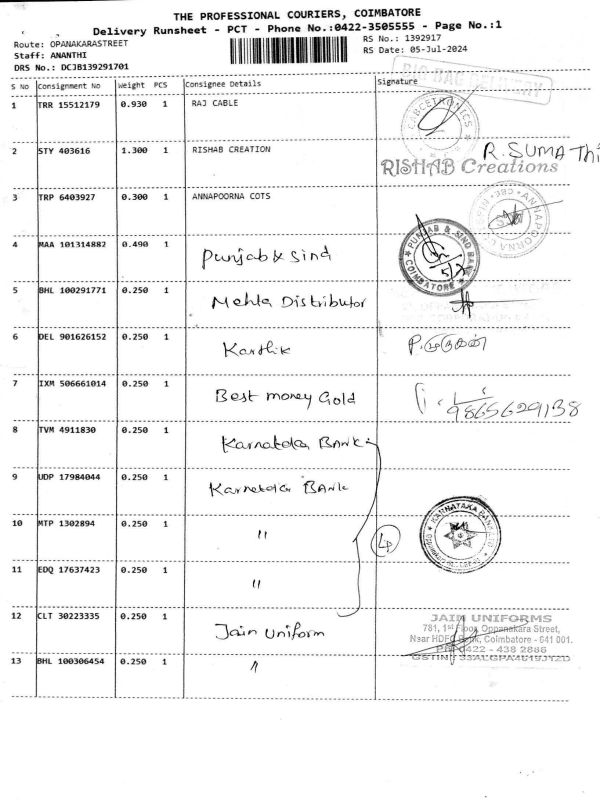 THE PROFESSIONAL COURIERS, COIMBATORE
Delivery Runsheet - PCT - Phone No.:0422-3505555 - Page No.:1
Route: OPANAKARASTREET
RS No.: 1392917
Staff: ANANTHI
RS Date: 05-Jul-2024
DRS No.: DCJB139291701
S No Consignment No Weight PCS Consignee Details Signature
1 TRR 15512179 0.930 1 RAJ CABLE
2 STY 403616 1.300 1 RISHAB CREATION R. SUMAThi
RISHAB Creations
3 TRP 6403927 0.300 1 ANNAPOORNA COTS
4 MAA 101314882 0.490 1 Punjab & Sind PUNJAB & SIND BANK COIMBATORE
5 BHL 100291771 0.250 1 Mehta Distributor
6 DEL 901626152 0.250 1 Karthik P. முருகன்
7 IXM 506661014 0.250 1 Best money Gold 9865629138
8 TVM 4911830 0.250 1 Karnataka BANK
9 UDP 17984044 0.250 1 Karnataka BANK
10 MTP 1302894 0.250 1 " KARNATAKA BANK
11 EDQ 17637423 0.250 1 "
12 CLT 30223335 0.250 1 Jain uniform JAIN UNIFORMS
781, 1st Floor, Oppanakara Street,
Near HDFC Bank, Coimbatore - 641 001.
PH: 0422 - 438 2886
13 BHL 100306454 0.250 1 "